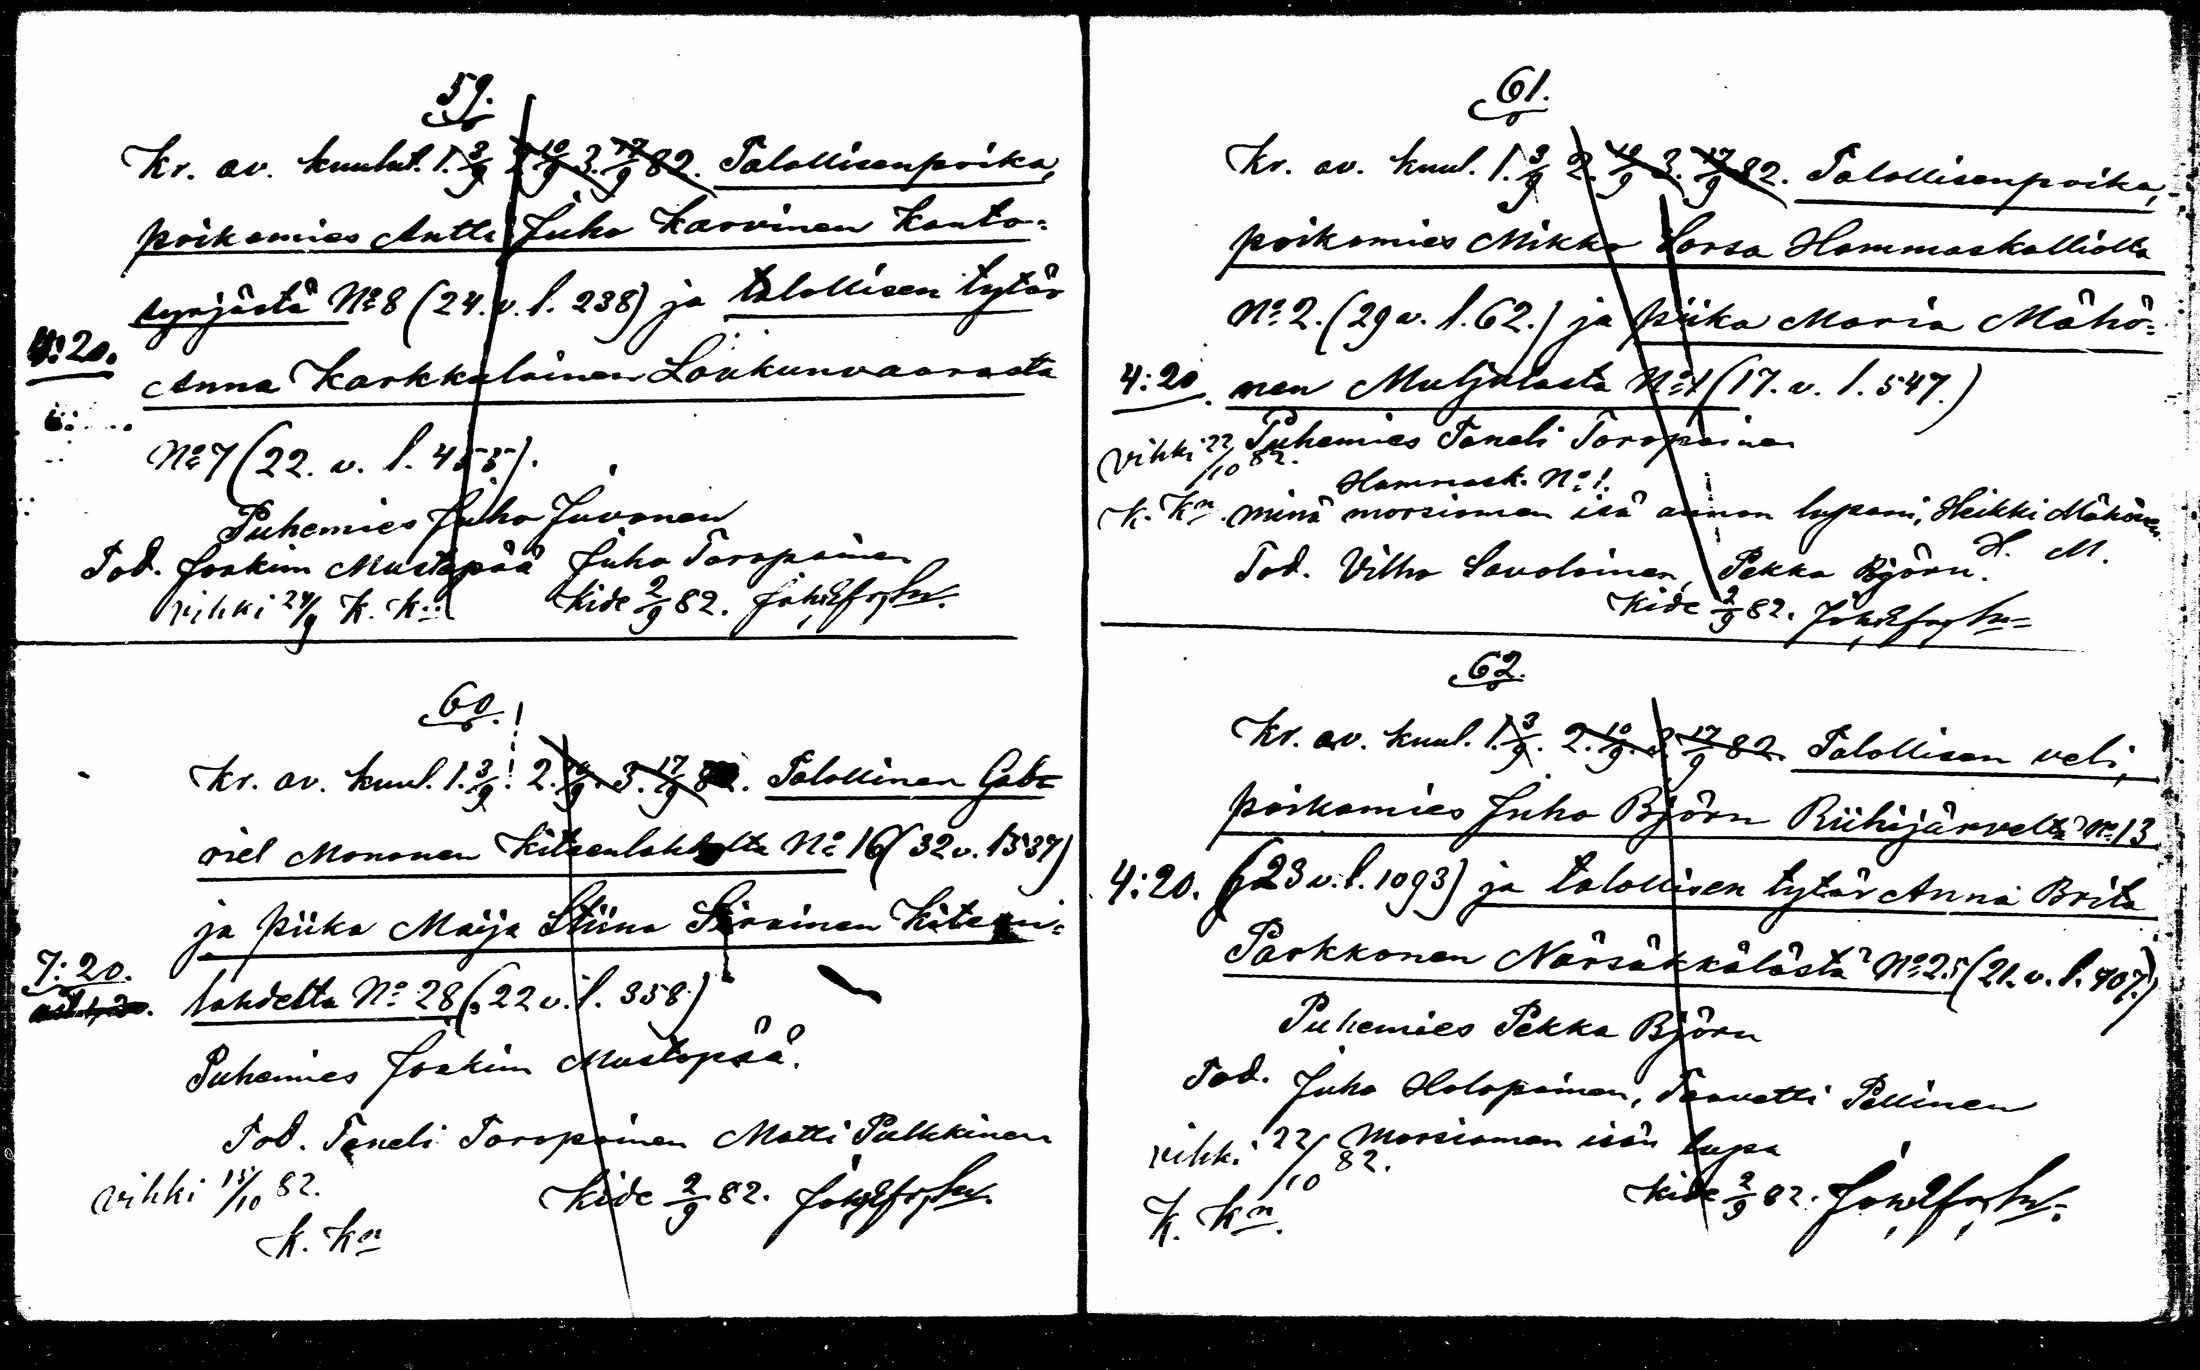 59.
Kr. av. kuulut. 1. 3/9 2. 10/9 3. 17/9 82. Talollisenpoika,
poikamies Antti Juho Karvinen Kanto=
syrjästä No 8 (24. v. l. 238) ja talollisen tytär
4:20.
Anna Karkkulainen Loukunvaarasta
No 7 (22. v. l. 455).
Puhemies Juho Juvonen
Tod. Joakim Mustapää Juho Toropainen
vihki 24/9 K. Kn Kide 2/9 82.
60.
Kr. av. kuul. 1. 3/9. 2. 10/9. 3. 17/9 82. Talollinen Gab=
riel Mononen Kiteenlahdelta No 16 (32 v. l 537)
ja piika Maija Stiina Sirainen Kiteen=
7:20.
lahdelta No 28 (22 v. l. 358)
Puhemies Joakim Mustapää.
Tod. Taneli Toropainen Matti Pulkkinen
vihki 15/10 82. Kide 2/9 82.
K. Kn
61.
Kr. av. kuul. 1. 3/9 2. 10/9 3. 17/9 82. Talollisenpoika,
poikamies Mikko Sorsa Hammaskalliolta
No 2. (29 v. l. 62.) ja piika Maria Mähö=
4:20. nen Muljulasta No 1 (17. v. l. 547.)
vihki 22/10 82. Puhemies Taneli Toropainen
Hammask. No 1.
K. Kn. minä morsiamen isä annan lupani, Heikki Mähönen
H. M.
Tod. Vilho Savolainen, Pekka Björn.
Kide 2/9 82.
62.
Kr. av. kuul. 1. 3/9. 2. 10/9. 3. 17/9 82. Talollisen veli,
poikamies Juho Björn Riihijärveltä No 13
4:20. (23 v. l. 1093) ja talollisen tytär Anna Brita
Parkkonen Närsäkkälästä No 25 (21. v. l. 707.)
Puhemies Pekka Björn
Tod. Juho Holopainen, Taavetti Pellinen
vihki 22/10 82. Morsiamen isän lupa
K. Kn. Kide 2/9 82.